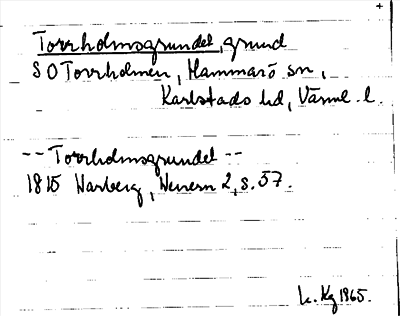 +
Torrholmsgrundet, grund
S O Torrholmen, Hammarö sn,
Karlstads hd, Värml. l.
-- Torrholmsgrundet --
1815 Warberg, Wenern 2, s. 37.
K. Kg 1965.